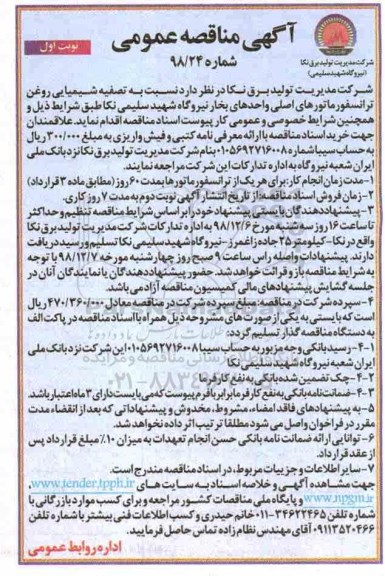 آگهی مناقصه عمومی
شماره ۹۸/۲۴
نوبت اول
شرکت مدیریت تولید برق نکا
(نیروگاه شهید سلیمی)
شرکت مدیریت تولید برق نکا در نظر دارد نسبت به تصفیه شیمیایی روغن
ترانسفورماتورهای اصلی واحدهای بخار نیروگاه شهید سلیمی نکا طبق شرایط ذیل و
همچنین شرایط خصوصی و عمومی کار پیوست اسناد مناقصه اقدام نماید. علاقمندان
جهت خرید اسناد مناقصه با ارائه معرفی نامه کتبی و فیش واریزی به مبلغ ۳۰۰/۰۰۰ ریال
به حساب سیبا شماره ۰۱۰۵۶۹۲۷۱۶۰۰۸ بنام شرکت مدیریت تولید برق نکا نزد بانک ملی
ایران شعبه نیروگاه به اداره تدارکات این شرکت مراجعه نمایند.
۱-مدت زمان انجام کار: برای هر یک از ترانسفورماتورها بمدت ۶۰ روز (مطابق ماده ۳ قرارداد)
۲- زمان فروش اسناد مناقصه: از تاریخ انتشار آگهی نوبت دوم به مدت ۷ روز کاری.
۳- پیشنهاد دهندگان بایستی پیشنهاد خود را بر اساس شرایط مناقصه تنظیم و حداکثر
تا ساعت ۱۶ روز سه شنبه مورخ ۹۸/۱۲/۶ به اداره تدارکات شرکت مدیریت تولید برق نکا
واقع در نکا-کیلومتر ۲۵ جاده زاغمرز - نیروگاه شهید سلیمی نکا تسلیم و رسید دریافت
دارند. پیشنهادات واصله راس ساعت ۹ صبح روز چهارشنبه مورخه ۹۸/۱۲/۷ با توجه
به شرایط مناقصه باز و قرائت خواهد شد. حضور پیشنهاد دهندگان یا نمایندگان آنان در
جلسه گشایش پیشنهادهای مالی کمیسیون مناقصه آزاد می باشد.
۴- سپرده شرکت در مناقصه: مبلغ سپرده شرکت در مناقصه معادل ۴۷۰/۳۶۰/۰۰۰ ریال
است که بایستی به یکی از صورت های مشروحه ذیل همراه با اسناد مناقصه در پاکت الف
به دستگاه مناقصه گذار تسلیم گردد:
۴-۱- رسید بانکی وجه مزبور به حساب سیبا ۰۱۰۵۶۹۲۷۱۶۰۰۸ این شرکت نزد بانک ملی
ایران شعبه نیروگاه شهید سلیمی نکا
۴-۲- چک تضمین شده بانکی به نفع کارفرما
۴-۳- ضمانت نامه بانکی به نفع کارفرما برابر با فرم پیوست که می بایست دارای ۳ ماه اعتبار باشد.
۵- به پیشنهادهای فاقد امضاء، مشروط، مخدوش و پیشنهاداتی که بعد از انقضاء مدت
مقرر در فراخوان واصل می شود مطلقا ترتیب اثر داده نخواهد شد.
۶- توانایی ارائه ضمانت نامه بانکی حسن انجام تعهدات به میزان ۱۰٪ مبلغ قرارداد پس
از عقد قرارداد.
۷- سایر اطلاعات و جزییات مربوط، در اسناد مناقصه مندرج است.
جهت مشاهده آگهی و خلاصه اسناد به سایت های www.tender.tpph.ir،
www.npgm.ir و پایگاه ملی مناقصات کشور مراجعه و برای کسب موارد بازرگانی با
شماره تلفن ۳۴۶۲۲۴۶۵-۰۱۱ خانم حیدری و کسب اطلاعات فنی بیشتر با شماره تلفن
۰۹۱۱۳۵۲۰۴۶۶ آقای مهندس نظام زاده تماس حاصل فرمایید.
اداره روابط عمومی